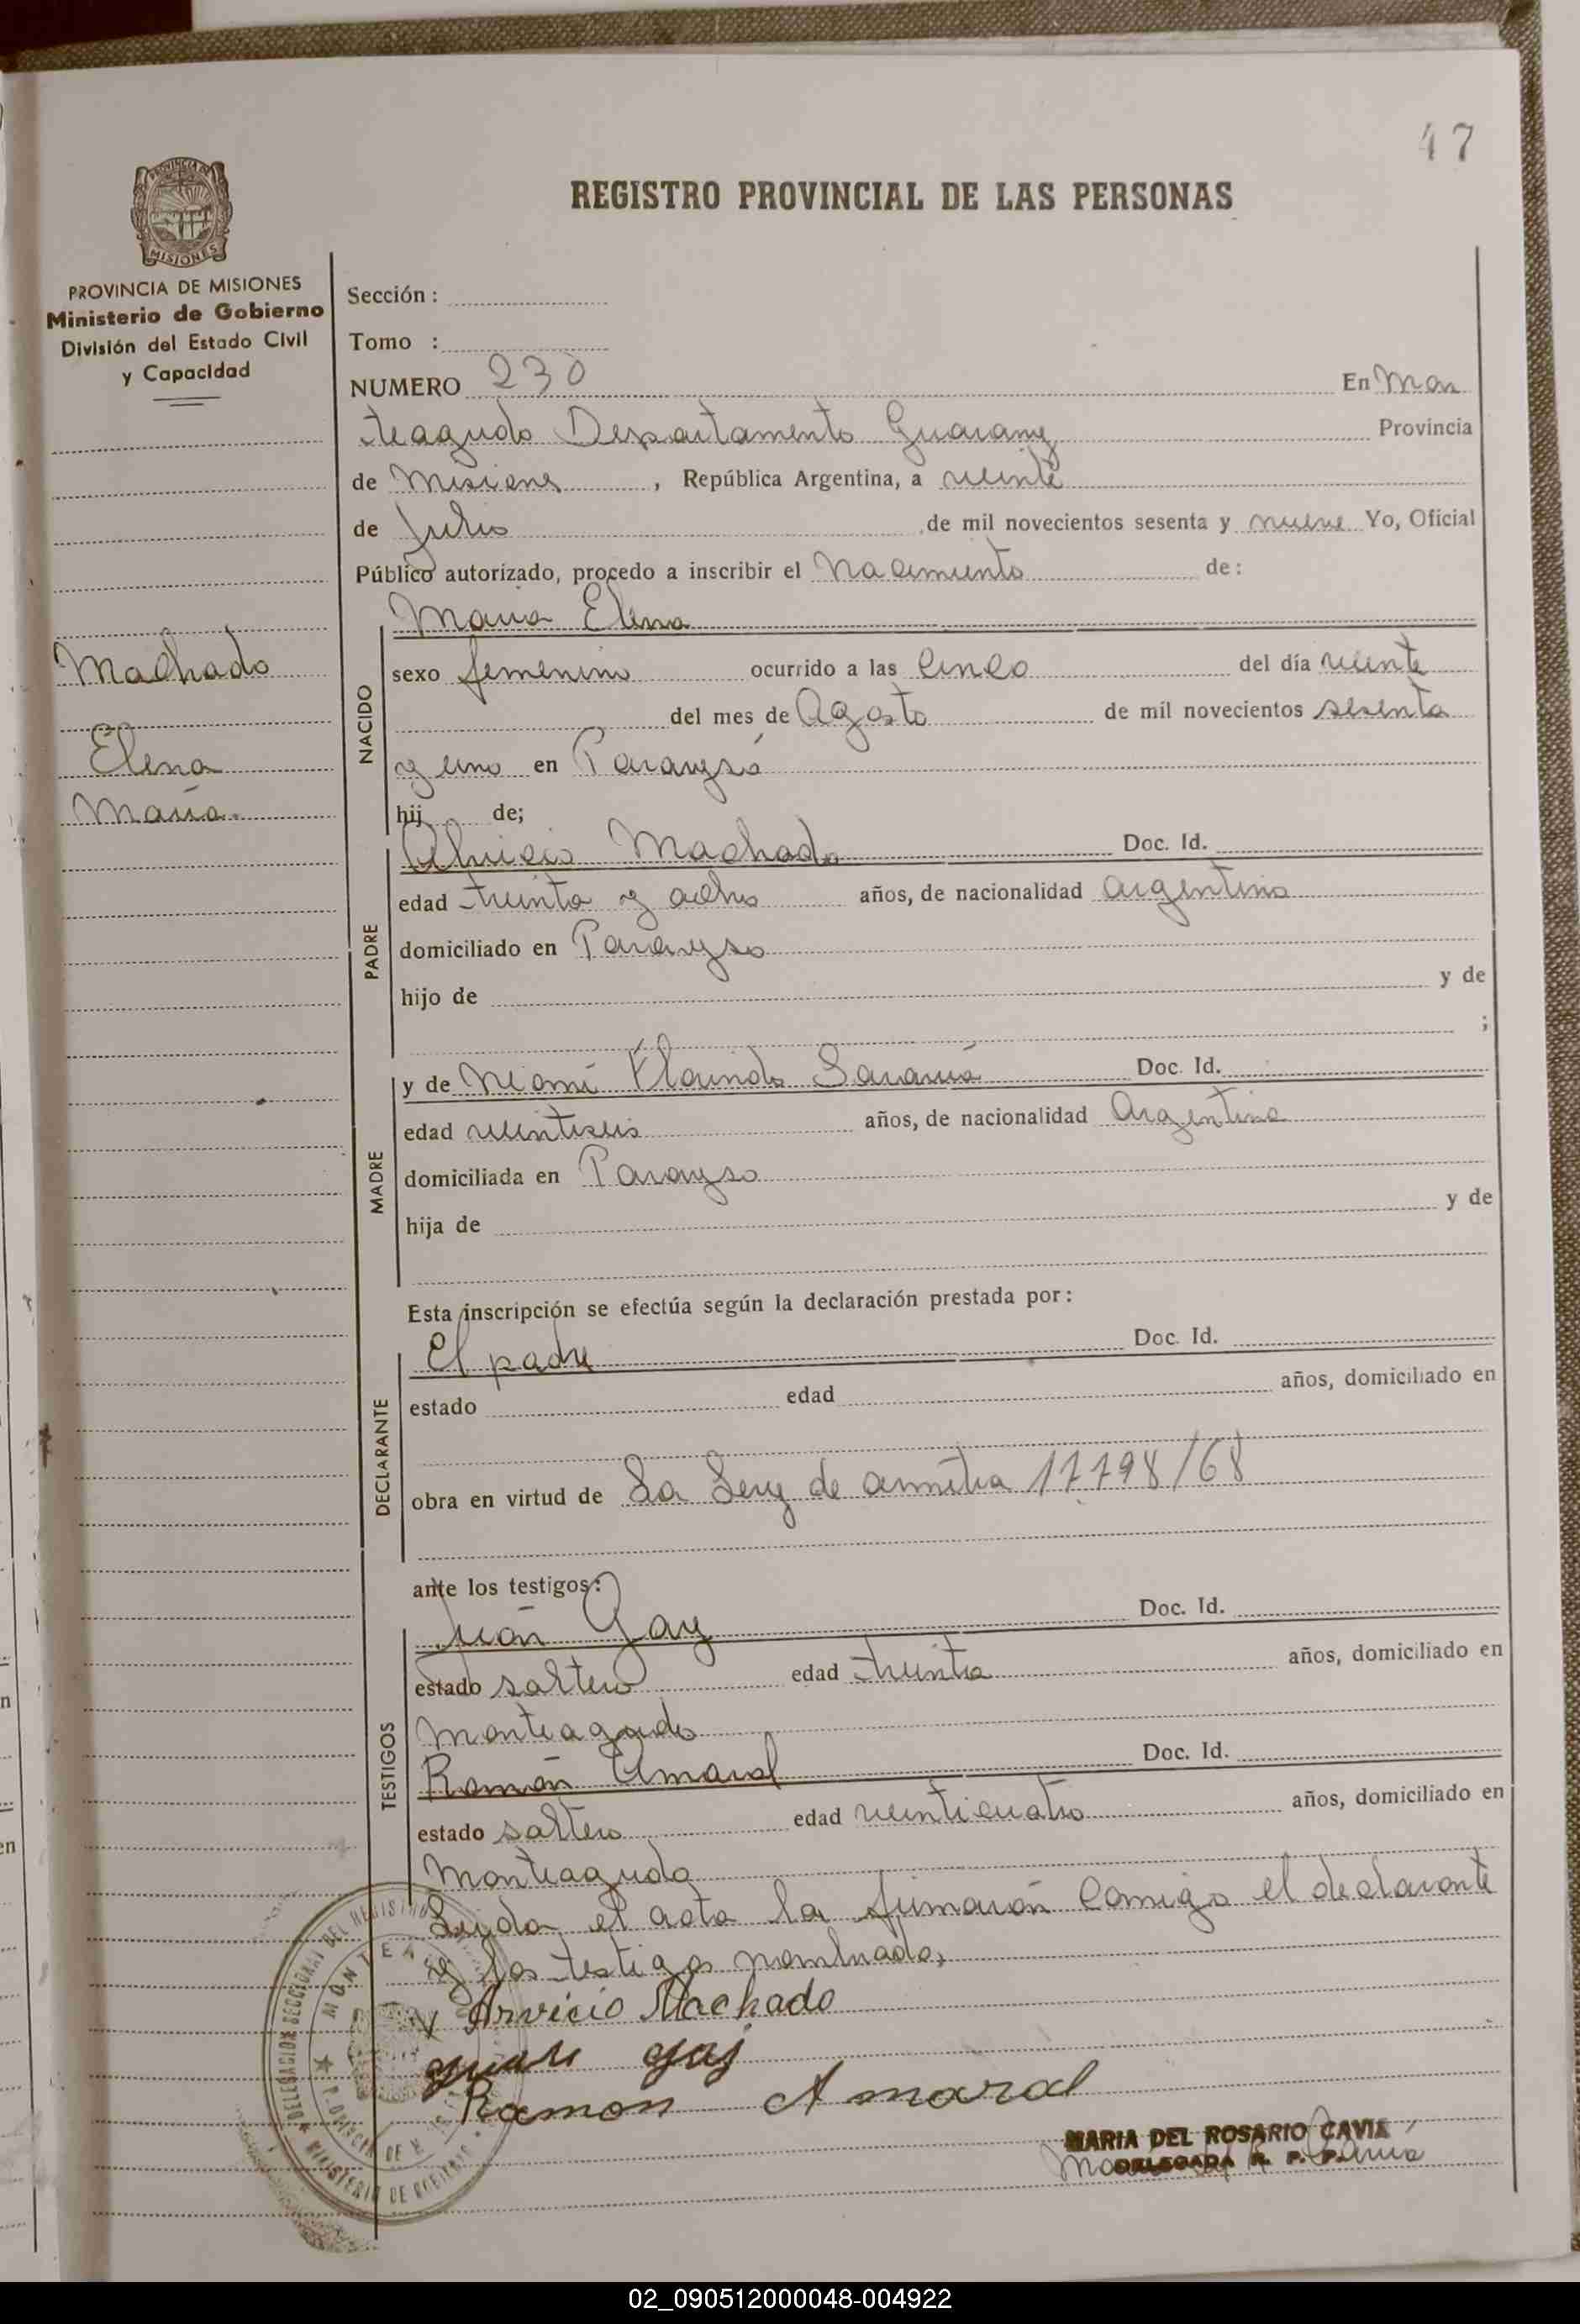 47
REGISTRO PROVINCIAL DE LAS PERSONAS
PROVINCIA DE
MISIONES
PROVINCIA DE MISIONES
Ministerio de Gobierno
División del Estado Civil
y Capacidad
Machado
Elena
María.
Sección :
Tomo :
NUMERO 230 En Mon
teagudo Departamento Guarany Provincia
de Misiones , República Argentina, a veinte
de Julio de mil novecientos sesenta y nueve Yo, Oficial
Público autorizado, procedo a inscribir el Nacimiento de:
NACIDO
Maria Elena
sexo femenino ocurrido a las cinco del día veinte
del mes de Agosto de mil novecientos sesenta
y uno en Parayso
hij de;
PADRE
Machado Doc. Id.
edad treinta y ocho años, de nacionalidad argentino
domiciliado en Parayso
hijo de y de
;
MADRE
y de Neomi Florinda Doc. Id.
edad veintiseis años, de nacionalidad Argentina
domiciliada en Parayso
hija de y de
Esta inscripción se efectúa según la declaración prestada por:
DECLARANTE
El padre Doc. Id.
estado edad años, domiciliado en
obra en virtud de La Ley de 17.798/68
ante los testigos:
TESTIGOS
Juan Gay Doc. Id.
estado soltero edad treinta años, domiciliado en
Monteagudo
Ramón Amaral Doc. Id.
estado soltero edad veinticuatro años, domiciliado en
Monteagudo
Leida el acta la firmarón comigo el declarante
y los testigos nombrados,
Arvicio Machado
Ramon Amaral
MARIA DEL ROSARIO CAVIA
DELEGADA R. P. P.
DELEGACION SECCIONAL DEL REGISTRO
MINISTERIO DE GOBIERNO
02_090512000048-004922